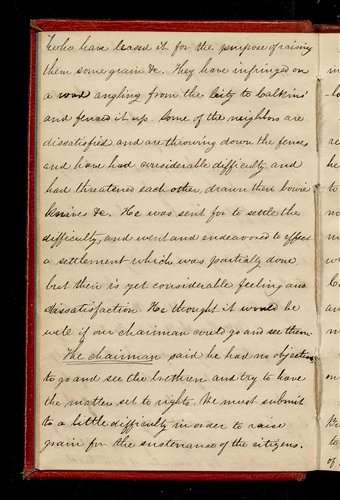 who have leased it for the purpose of raising
them some grain &c. They have infringed on
a road angling from the City to Calkins'
and fenced it up. Some of the neighbors are
dissatisfied and are throwing down the fence,
and have had considerable difficulty and
had threatened each other, drawn their bowie
knives &c. He was sent for to settle the
difficulty, and went and endeavored to effect
a settlement which was partially done
but there is yet considerable feeling and
dissatisfaction. He thought it would be
well if our chairman could go and see them.
The chairman said he had no objection
to go and see the brethren and try to have
the matter set to rights. We must submit
to a little difficulty in order to raise
grain for the sustenance of the citizens.